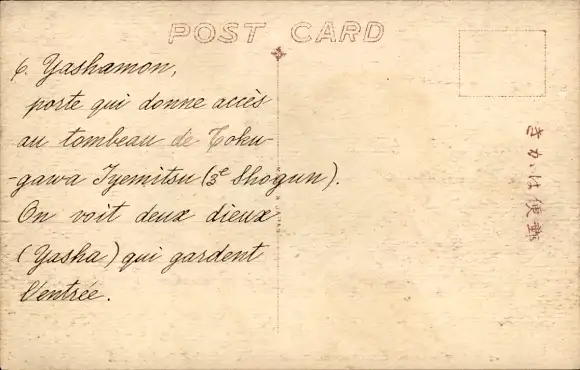 POST CARD
6. Yashamon,
porte qui donne accès
au tombeau de Toku-
-gawa Iyemitsu (3e Shogun).
On voit deux dieux
(Yasha) qui gardent
l'entrée.
きか.は便郵